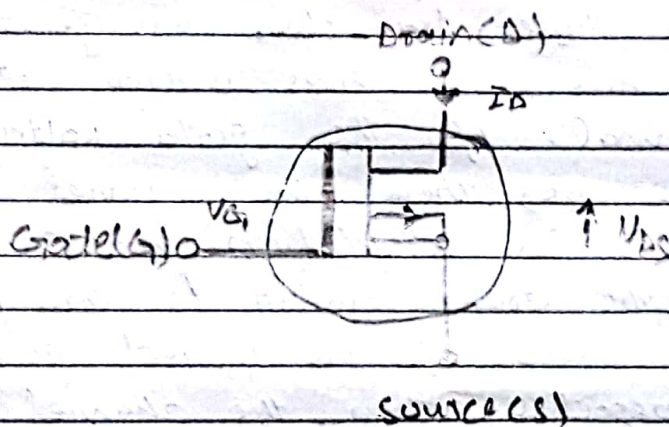 Drain(D)
ID
VG
Gate(G)
VDS
Source(S)